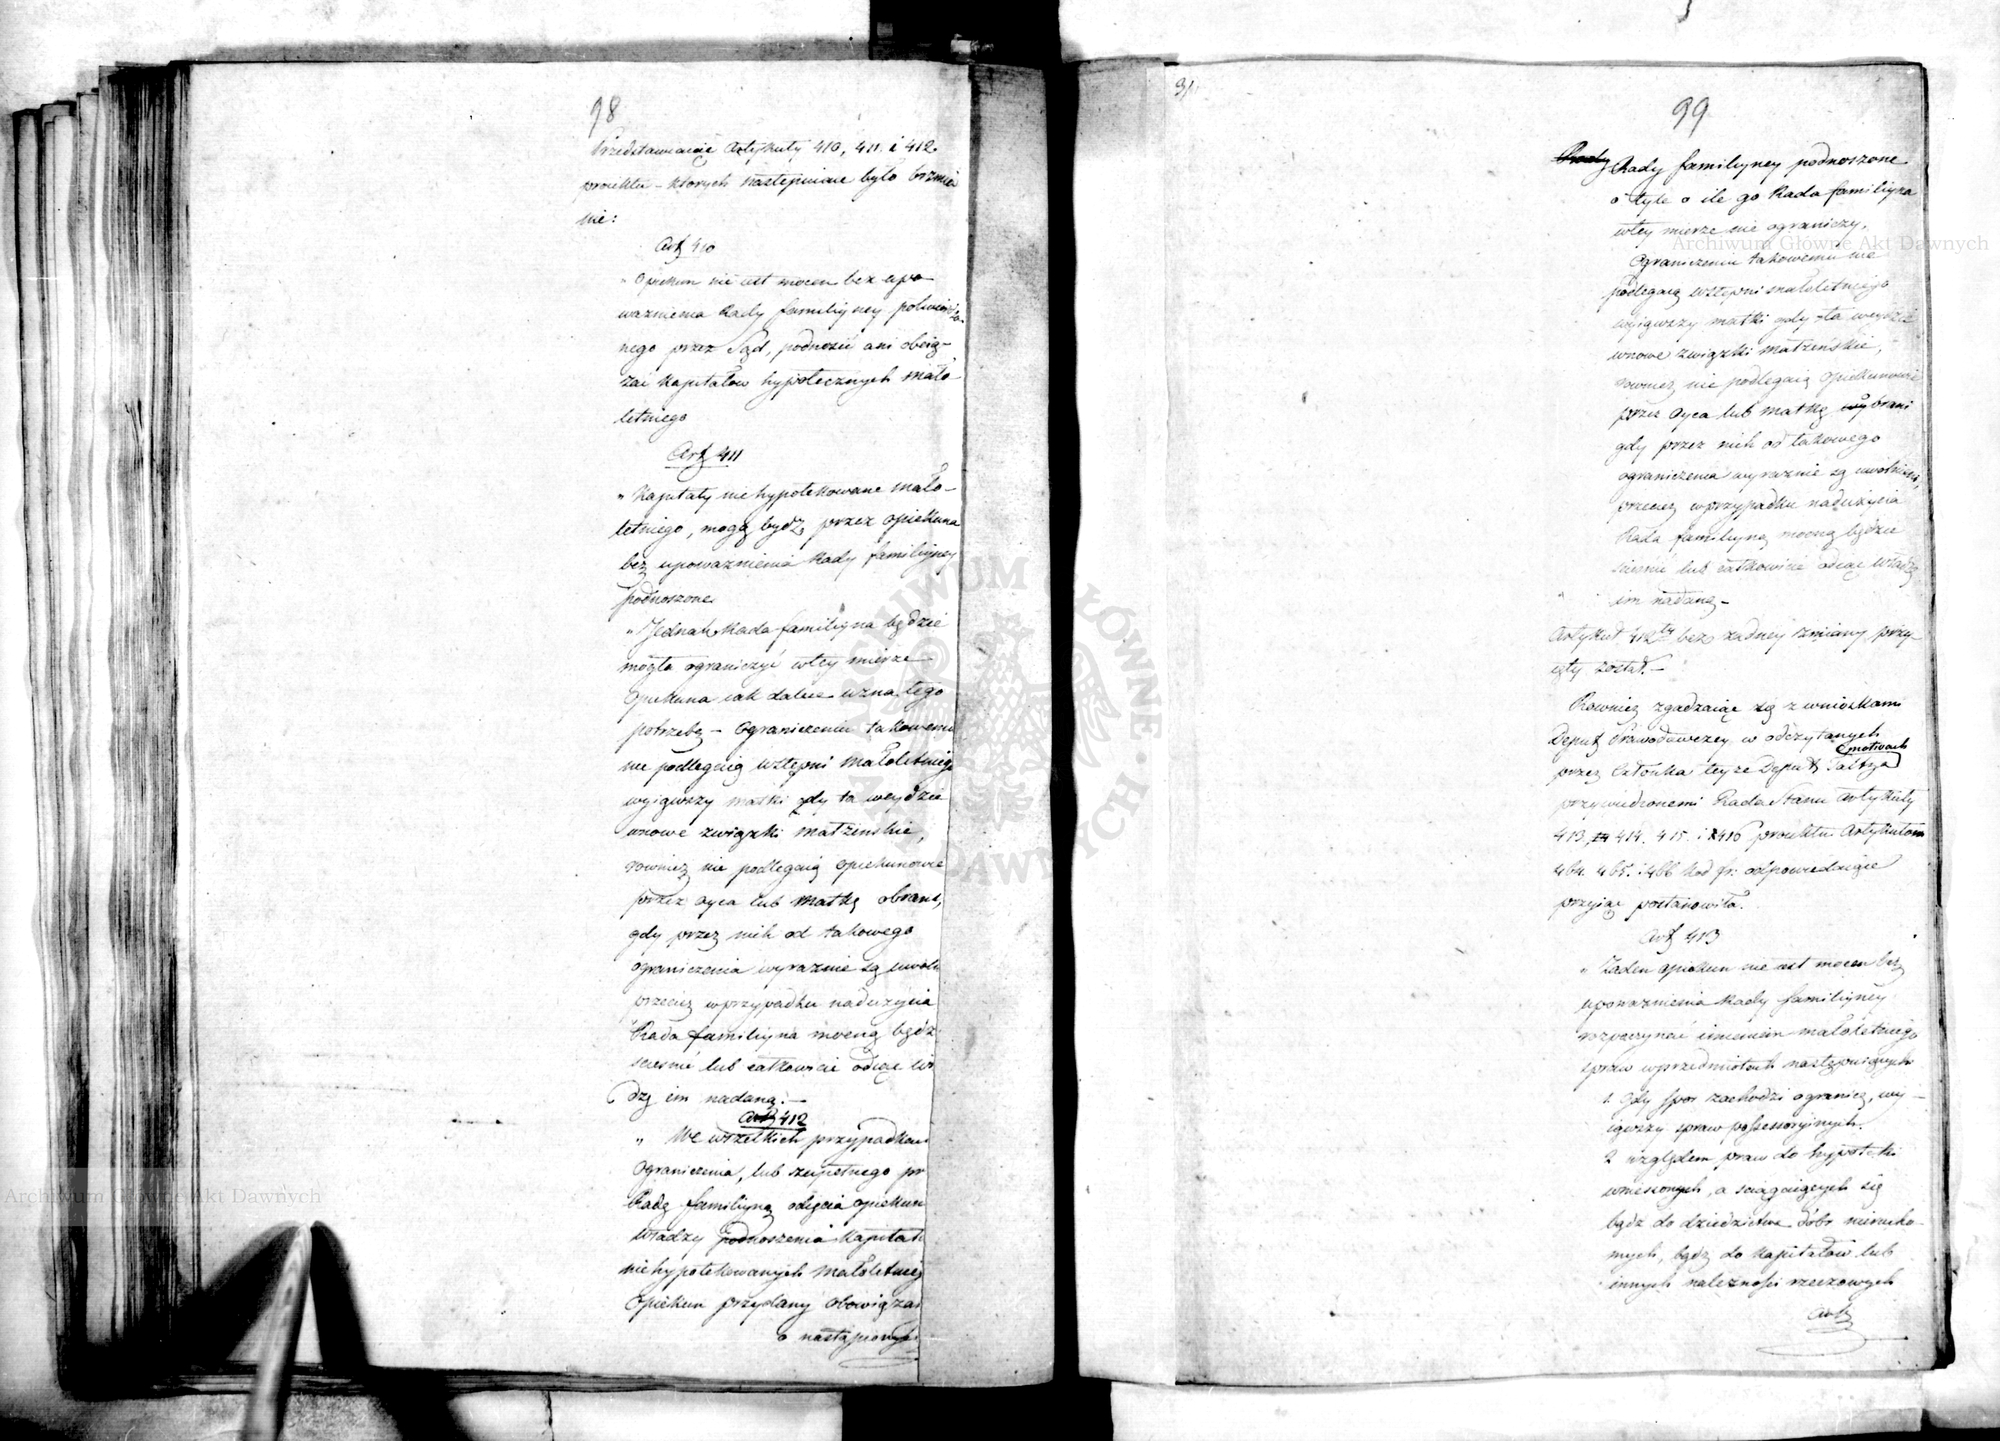 98
Przedstawiaiąc Artykuły 410, 411. i 412.
proiektu – których następuiące było brzmie
nie:
Art 410
„ Opiekun nie iest mocen bez upo
ważnienia Rady familijney potwierdzo-
nego przez Sąd, podnosić ani obcią-
żać kapitałów hypotecznych mało-
letniego
Art 411
„ Kapitały niehypotekowane mało-
letniego, mogą bydź przez opiekuna
bez upoważnienia Rady familijney
podnoszone.
„ Jednak Rada familijna będzie
mogła ograniczyć wtey mierze
Opiekuna iak dalece uzna tego
potrzebę – Ograniczeniu takowemu
nie podlegaią wstępni małoletniego
wyiąwszy matki gdy ta weydzie
wnowe związki małżeńskie,
rownież nie podlegaią opiekunowie
przez oyca lub matkę obrani,
gdy przez nich od takowego
ograniczenia wyraznie są uwoln
przecież wprzypadku nadużycia
Rada familijna mocną będz
scieśnić lub całkowicie odiąć wł
dzę im nadaną. –
Art 412
„ We wszelkich przypadkach
ograniczenia, lub zupełnego pr
Radę familijną odięcia opiekun
władzy podnoszenia kapitał
niehypotekowanych małoletnieg
Opiekun przydany obowiązan
o nastąpionych
31
99
Rady Rady familijney podnoszone
o tyle o ile go Rada familijna
wtey mierze nie ograniczy.
Ograniczeniu takowemu nie
podlegaią wstępni małoletniego
wyiąwszy matki gdy ta weydzie
wnowe związki małżeńskie,
rownież nie podlegaią opiekunowie
przez oyca lub matkę wybrani
gdy przez nich od takowego
ograniczenia wyraznie są uwolnieni,
przecież wprzypadku nadużycia
Rada familijna mocną będzie
scieśnić lub całkowicie odiąć władzę
im nadaną –
Artykuł 412ty bez żadney zmiany przy-
ięty został. –
Rownież zgadzaiąc się z wnioskami
Deput Prawodawczey w odczytanych
motivach
przez Członka teyże Deput
przywiedzionemi Rada Stanu Artykuły
413, 414. 415. i 416 proiektu Artykułom
464. 465. i 466 Kod fr: odpowiadaiące
przyiąć postanowiła.
Art 413
„ Żaden opiekun nie iest mocen bez
upoważnienia Rady familijney
rozpoczynać imieniem małoletniego
spraw wprzedmiotach następuiących
1. Gdy spor zachodzi o granice, wy-
iąwszy spraw possessoryinych.
2 względem praw do hypoteki
wniesionych, a sciągaiących się
bądź do dziedzictwa dóbr nierucho-
mych, bądź do kapitałów lub
innych należności rzeczowych
Art
Archiwum Główne Akt Dawnych
Archiwum Główne Akt Dawnych
ARCHIWUM GŁÓWNE AKT DAWNYCH